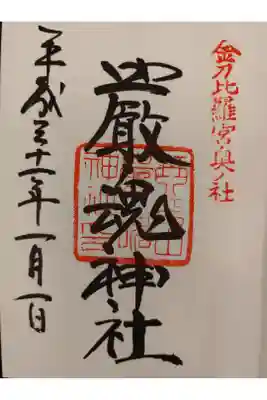 金刀比羅宮奥ノ社
厳魂神社
平成三十一年一月一日